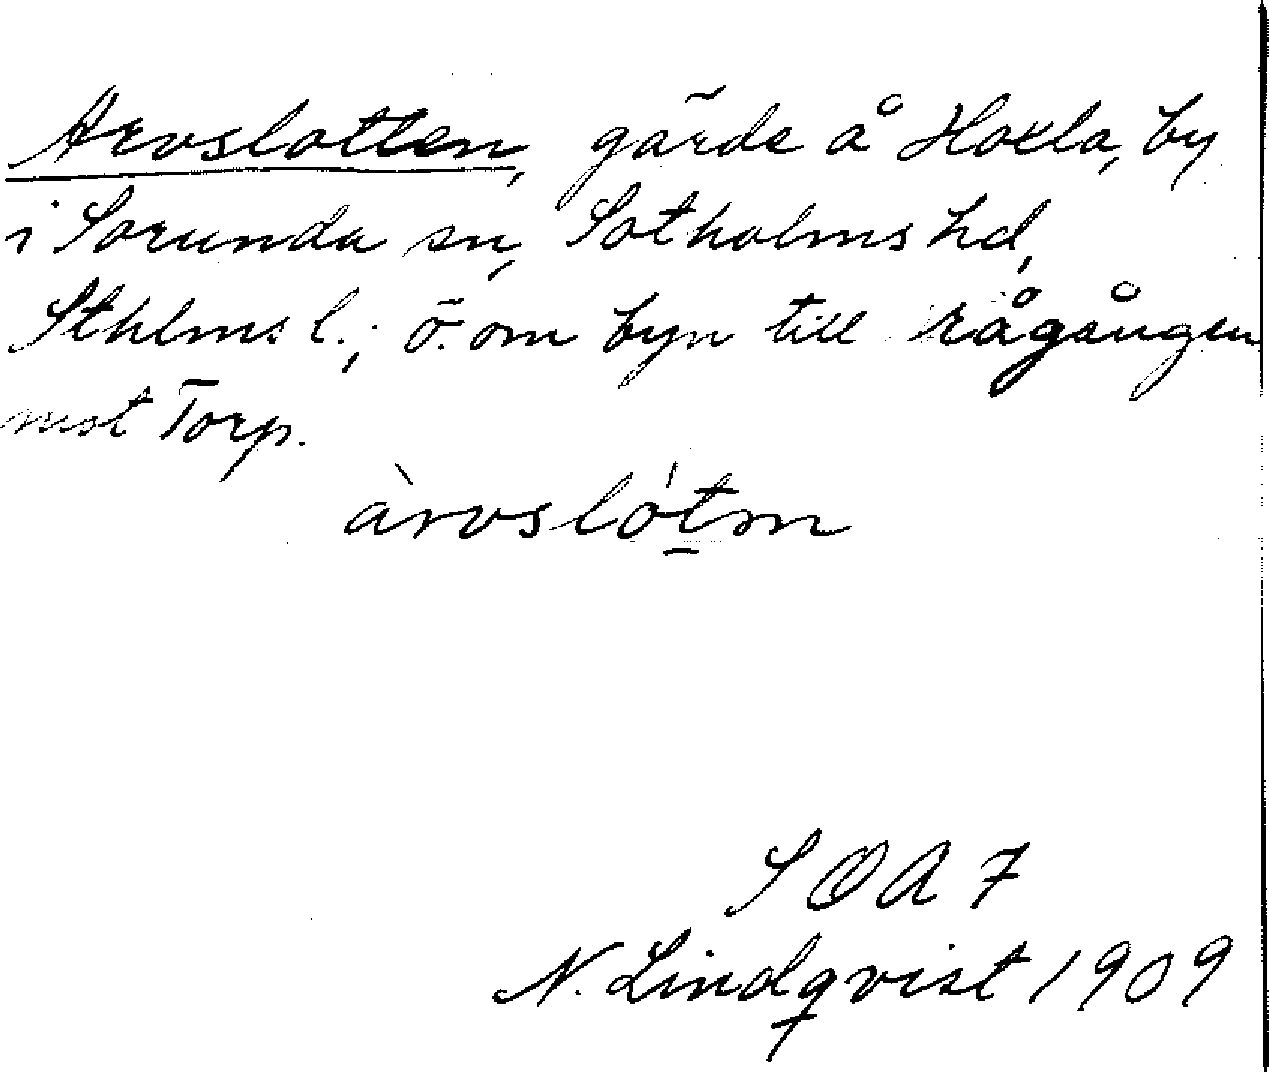 Arvslotten, gärde å Hoxla, by
i Sorunda sn, Sotholms hd,
Sthlms l.; ö. om byn till rågången
mot Torp.
àrvslótm
S O A 7
N. Lindqvist 1909